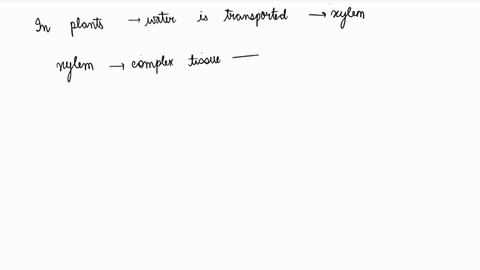 In plants → water is transported → xylem
xylem → complex tissue —